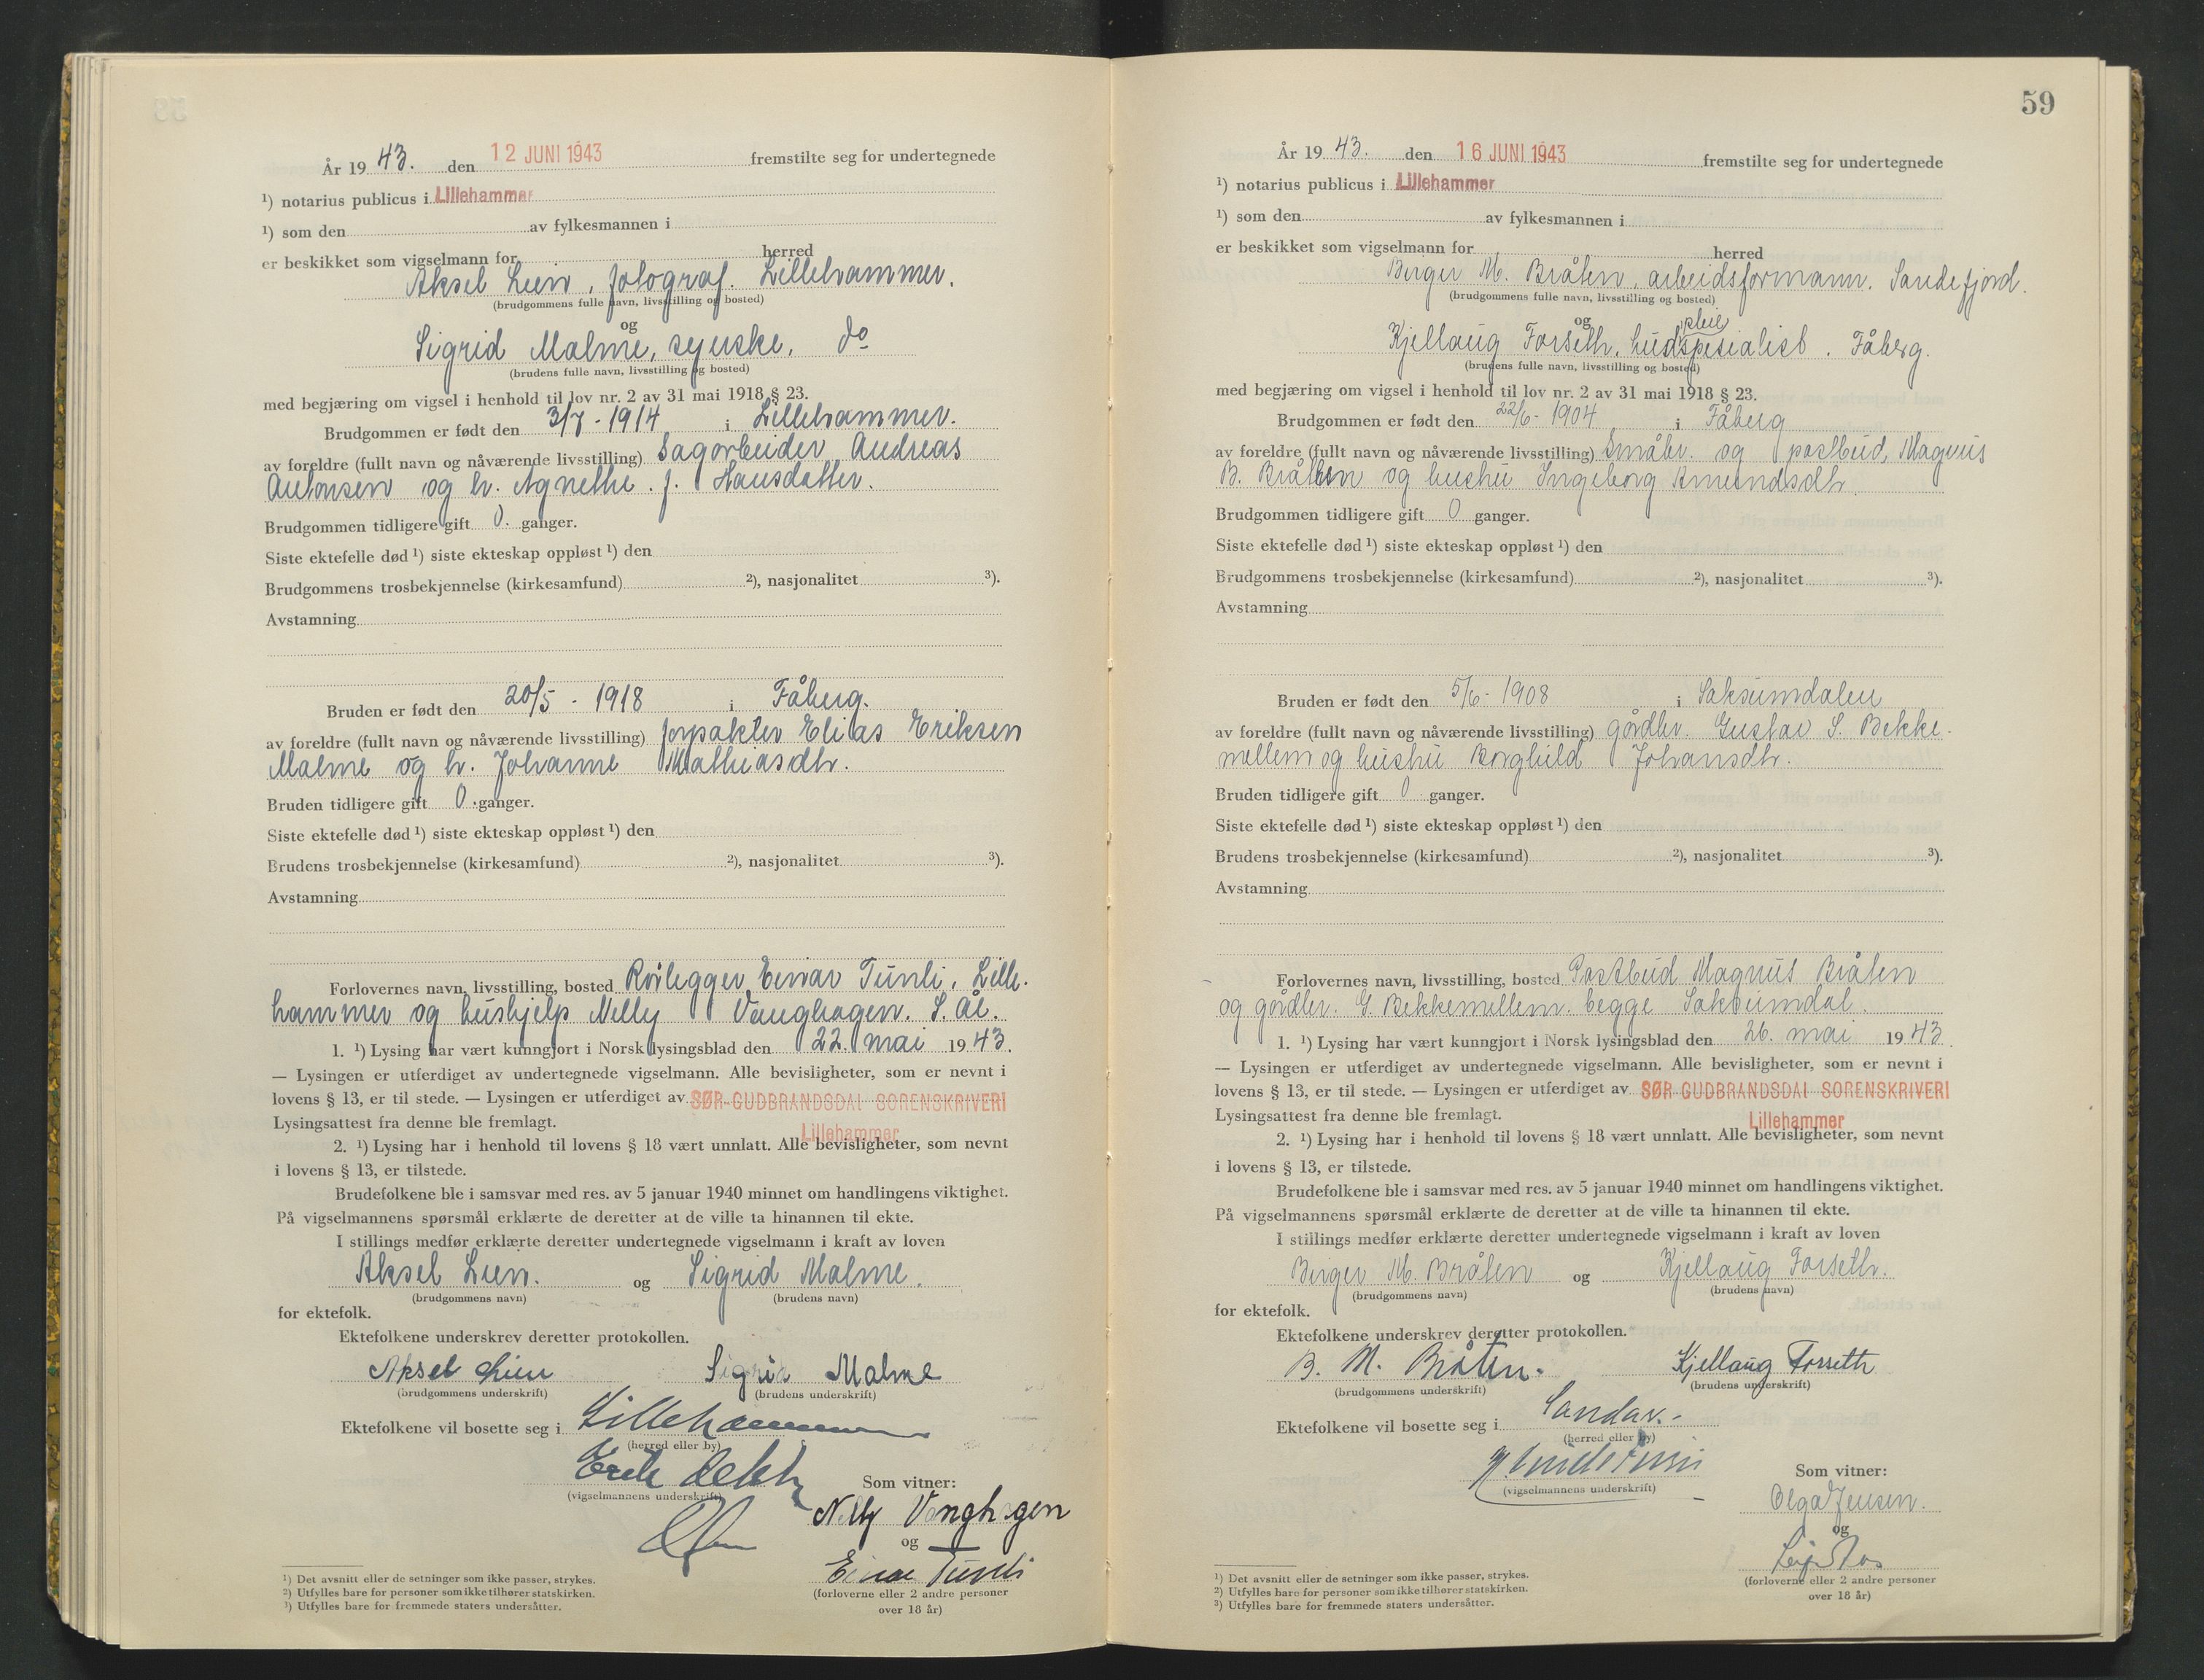 År 19 43. den 12 JUNI 1943 fremstilte seg for undertegnede
¹) notarius publicus i Lillehammer
¹) som den av fylkesmannen i
er beskikket som vigselmann for herred
Aksel Lien, fotograf. Lillehammer.
(brudgommens fulle navn, livsstilling og bosted)
og
Sigrid Malme, syerske, do
(brudens fulle navn, livsstilling og bosted)
med begjæring om vigsel i henhold til lov nr. 2 av 31 mai 1918 § 23.
Brudgommen er født den 3/7 - 1914 i Lillehammer.
av foreldre (fullt navn og nåværende livsstilling) Sagarbeider Andreas
Antonsen og h. Agnethe f. Hansdatter.
Brudgommen tidligere gift 0. ganger.
Siste ektefelle død ¹) siste ekteskap oppløst ¹) den
Brudgommens trosbekjennelse (kirkesamfund) ²), nasjonalitet ³).
Avstamning
Bruden er født den 20/5 - 1918 i Fåberg.
av foreldre (fullt navn og nåværende livsstilling) forpakter Elias Eriksen
Malme og h. Johanne Mathiasdtr.
Bruden tidligere gift 0 ganger.
Siste ektefelle død ¹) siste ekteskap oppløst ¹) den
Brudens trosbekjennelse (kirkesamfund) ²), nasjonalitet ³).
Avstamning
Forlovernes navn, livsstilling, bosted Rørlegger Einar Tunli, Lille-
hammer og hushjelp Nelly Vanghagen. S. Ål.
1. ¹) Lysing har vært kunngjort i Norsk lysingsblad den 22. mai 1943.
— Lysingen er utferdiget av undertegnede vigselmann. Alle bevisligheter, som er nevnt i
lovens § 13, er til stede. — Lysingen er utferdiget av SØR-GUDBRANDSDAL SORENSKRIVERI
Lysingsattest fra denne ble fremlagt.
Lillehammer
2. ¹) Lysing har i henhold til lovens § 18 vært unnlatt. Alle bevisligheter, som nevnt
i lovens § 13, er tilstede.
Brudefolkene ble i samsvar med res. av 5 januar 1940 minnet om handlingens viktighet.
På vigselmannens spørsmål erklærte de deretter at de ville ta hinannen til ekte.
I stillings medfør erklærte deretter undertegnede vigselmann i kraft av loven
Aksel Lien. og Sigrid Malme.
(brudgommens navn) (brudens navn)
for ektefolk.
Ektefolkene underskrev deretter protokollen.
Aksel Lien Sigrid Malme
(brudgommens underskrift) (brudens underskrift)
Ektefolkene vil bosette seg i Lillehammer
(herred eller by)
Erik
(vigselmannens underskrift)
Som vitner:
Nelly Vanghagen
og
Einar Tunli
(forloverne eller 2 andre personer
over 18 år)
¹) Det avsnitt eller de setninger som ikke passer, strykes.
²) Utfylles bare for personer som ikke tilhører statskirken.
³) Utfylles bare for fremmede staters undersåtter.
59
År 19 43. den 16 JUNI 1943 fremstilte seg for undertegnede
¹) notarius publicus i Lillehammer
¹) som den av fylkesmannen i
er beskikket som vigselmann for herred
Birger M. Bråten, arbeidsformann. Sandefjord.
(brudgommens fulle navn, livsstilling og bosted)
og
pleie
Kjellaug Forseth, hudspesialist. Fåberg.
(brudens fulle navn, livsstilling og bosted)
med begjæring om vigsel i henhold til lov nr. 2 av 31 mai 1918 § 23.
Brudgommen er født den 22/6 - 1904 i Fåberg
av foreldre (fullt navn og nåværende livsstilling) Småbr. og postbud, Magnus
B. Bråten og hustru Ingeborg Amundsdtr.
Brudgommen tidligere gift 0 ganger.
Siste ektefelle død ¹) siste ekteskap oppløst ¹) den
Brudgommens trosbekjennelse (kirkesamfund) ²), nasjonalitet ³).
Avstamning
Bruden er født den 5/6 - 1908 i Saksumdalen
av foreldre (fullt navn og nåværende livsstilling) gårdbr. Gustav S. Bekke-
mellem og hustru Borghild Johansdtr.
Bruden tidligere gift 0 ganger.
Siste ektefelle død ¹) siste ekteskap oppløst ¹) den
Brudens trosbekjennelse (kirkesamfund) ²), nasjonalitet ³).
Avstamning
Forlovernes navn, livsstilling, bosted Postbud Magnus Bråten
og gårdbr. G. Bekkemellem. begge Saksumdal.
1. ¹) Lysing har vært kunngjort i Norsk lysingsblad den 26. mai 1943
— Lysingen er utferdiget av undertegnede vigselmann. Alle bevisligheter, som er nevnt i
lovens § 13, er til stede. — Lysingen er utferdiget av SØR-GUDBRANDSDAL SORENSKRIVERI
Lysingsattest fra denne ble fremlagt.
Lillehammer
2. ¹) Lysing har i henhold til lovens § 18 vært unnlatt. Alle bevisligheter, som nevnt
i lovens § 13, er tilstede.
Brudefolkene ble i samsvar med res. av 5 januar 1940 minnet om handlingens viktighet.
På vigselmannens spørsmål erklærte de deretter at de ville ta hinannen til ekte.
I stillings medfør erklærte deretter undertegnede vigselmann i kraft av loven
Birger M. Bråten og Kjellaug Forseth.
(brudgommens navn) (brudens navn)
for ektefolk.
Ektefolkene underskrev deretter protokollen.
B. M. Bråten. Kjellaug Forseth
(brudgommens underskrift) (brudens underskrift)
Ektefolkene vil bosette seg i Sandar.-
(herred eller by)
(vigselmannens underskrift)
Som vitner:
Olga Jensen.
og
(forloverne eller 2 andre personer
over 18 år)
¹) Det avsnitt eller de setninger som ikke passer, strykes.
²) Utfylles bare for personer som ikke tilhører statskirken.
³) Utfylles bare for fremmede staters undersåtter.